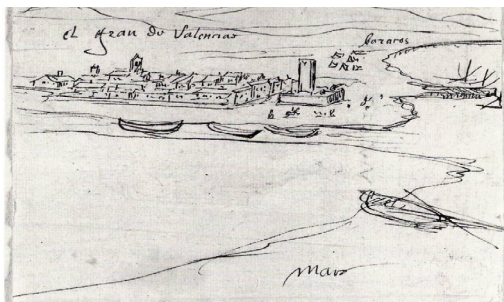 el grau de Valencia
baracos
mare